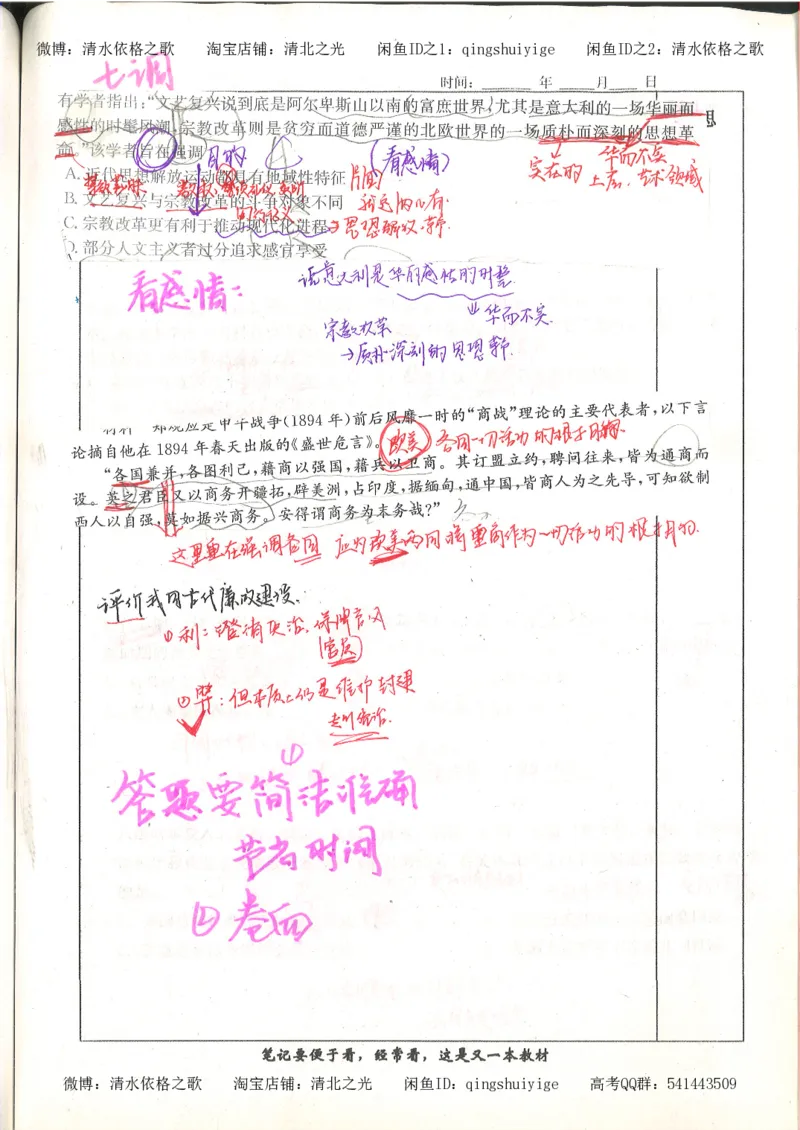 微博：清水依格之歌 淘宝店铺：清北之光 闲鱼ID之1：qingshuiyige 闲鱼ID之2：清水依格之歌
七调
时间： 年 月 日
有学者指出：“文艺复兴说到底是阿尔卑斯山以南的富庶世界，尤其是意大利的一场华丽而
感性的时髦风潮，宗教改革则是贫穷而道德严谨的北欧世界的一场质朴而深刻的思想革
命。”该学者旨在强调
目的
（看感情）
华而不实
实在的
上层，艺术领域
A. 近代思想解放运动都具有地域性特征
B. 文艺复兴与宗教改革的斗争对象不同
C. 宗教改革更有利于推动现代化进程
→思想解放，新
D. 部分人文主义者过分追求感官享受
看感情：
说意大利是华丽感性的时髦
华而不实
宗教改革
→质朴深刻的思想革
材料 郑观应是甲午战争(1894年)前后风靡一时的“商战”理论的主要代表者，以下言
论摘自他在1894年春天出版的《盛世危言》。
欧美
各国一切活动的根本目的
“各国兼并，各图利己，藉商以强国，藉兵以卫商。其订盟立约，聘问往来，皆为通商而
设。英之君臣又以商务开疆拓，辟美洲，占印度，据缅甸，通中国，皆商人为之先导，可知欲制
西人以自强，莫如振兴商务。安得谓商务为末务战？”
这里重在强调各国 应为欧美两国将重商作为一切活动的根本目的
评价我国古代廉政建设.
①利：澄清政治，保障官
官员
②弊：但本质上仍是维护封建
专制统治.
①
答题要简洁准确
节省时间
② 卷面
笔记要便于看，经常看，这是又一本教材
微博：清水依格之歌 淘宝店铺：清北之光 闲鱼ID：qingshuiyige 高考QQ群：541443509